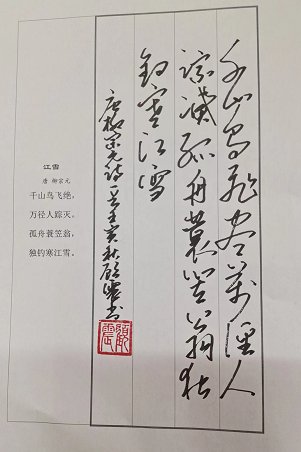 千山鸟飛萬徑人
踪滅孤舟蓑笠翁独
钓寒江雪
唐柳宗元诗一首亥秋顾书
江雪
唐 柳宗元
千山鸟飞绝，
万径人踪灭，
孤舟蓑笠翁，
独钓寒江雪。